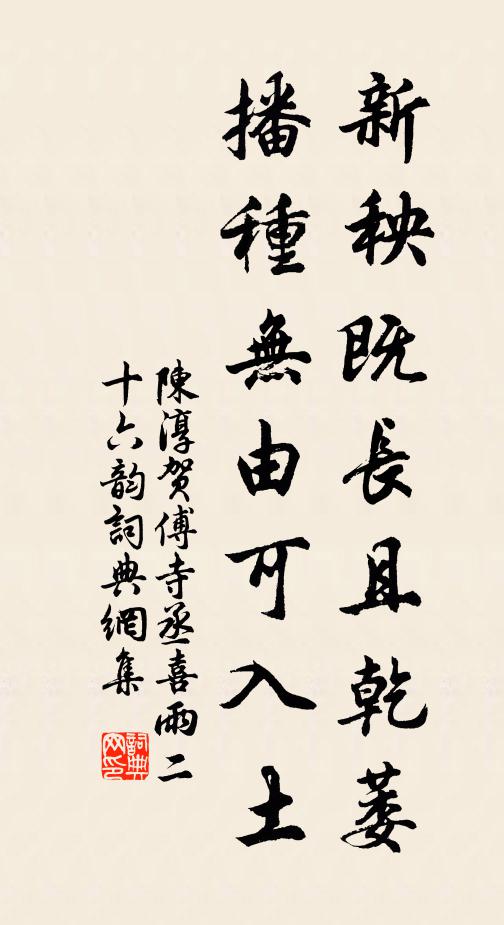 新秧既長且乾萎
播種無由可入土
陳淳賀傅寺丞喜雨二
十六韵詞典網集
詞典网印